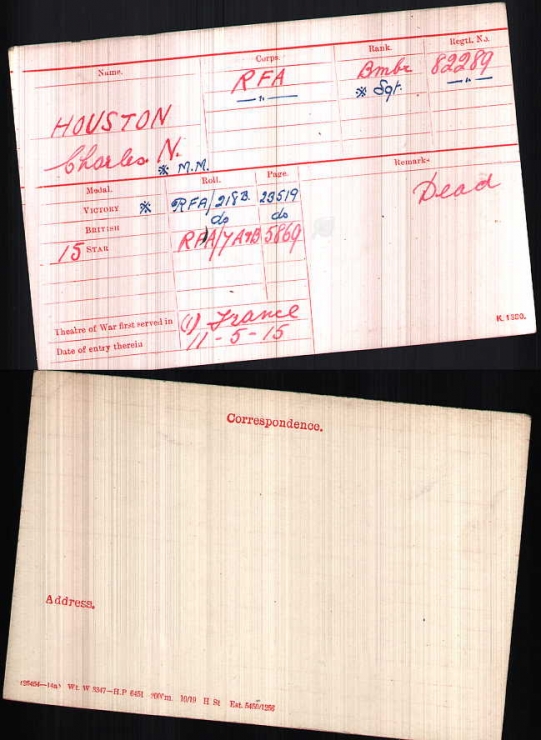 Name. Corps. Rank. Regtl. No.
RFA Bmbr 82289
—"— * Sgt. —"—
HOUSTON
Charles N.
* M.M.
Medal. Roll. Page. Remarks
VICTORY * RFA/218B. 23519 Dead
BRITISH do do
15 STAR RFA/7A&B 5869
Theatre of War first served in (1) France
Date of entry therein 11-5-15
K. 1380.
Correspondence.
Address.
Wt. W 5347—H.P 6451 10/19 H St